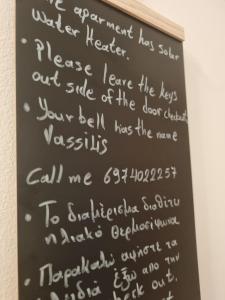 aparment has Solar
Water Heater.
• Please leave the keys
out side of the door checkout
• Your bell has the name
Vassilis
Call me 6974022257
• Το διαμέρισμα διαθέτει
ηλιακό θερμοσίφωνα
• Παρακαλώ αφήστε τα
έξω από την
check out.